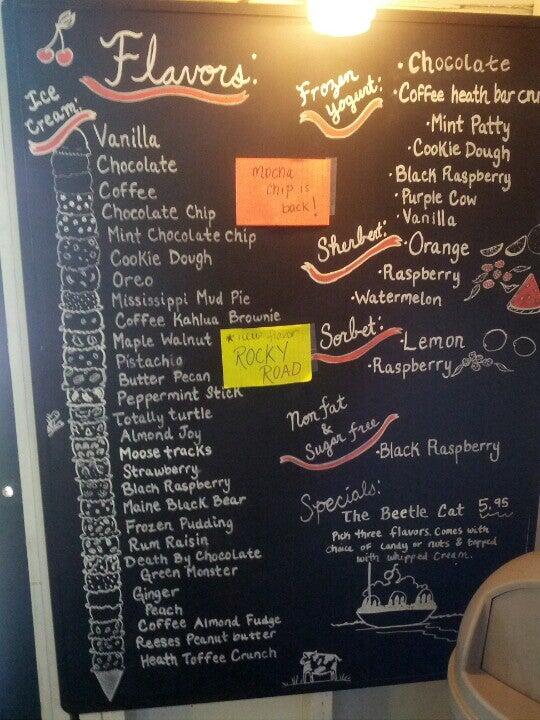 Flavors:
Ice
Cream:
Vanilla
Chocolate
Coffee
Chocolate Chip
Mint Chocolate chip
Cookie Dough
Oreo
Mississippi Mud Pie
Coffee Kahlua Brownie
Maple Walnut
Pistachio
Butter Pecan
Peppermint Stick
Totally turtle
Almond Joy
Moose tracks
Strawberry
Black Raspberry
Maine Black Bear
Frozen Pudding
Rum Raisin
Death By Chocolate
Green Monster
Ginger
Peach
Coffee Almond Fudge
Reeses Peanut butter
Heath Toffee Crunch
mocha
chip is
back!
*new flavor
ROCKY
ROAD
Frozen
Yogurt:
• Chocolate
• Coffee heath bar cru
• Mint Patty
• Cookie Dough
• Black Raspberry
• Purple Cow
• Vanilla
Sherbert:
• Orange
• Raspberry
• Watermelon
Sorbet:
• Lemon
• Raspberry
Nonfat
&
Sugar free
• Black Raspberry
Specials:
The Beetle Cat 5.95
Pick three flavors. Comes with
choice of candy or nuts & topped
with whipped cream.